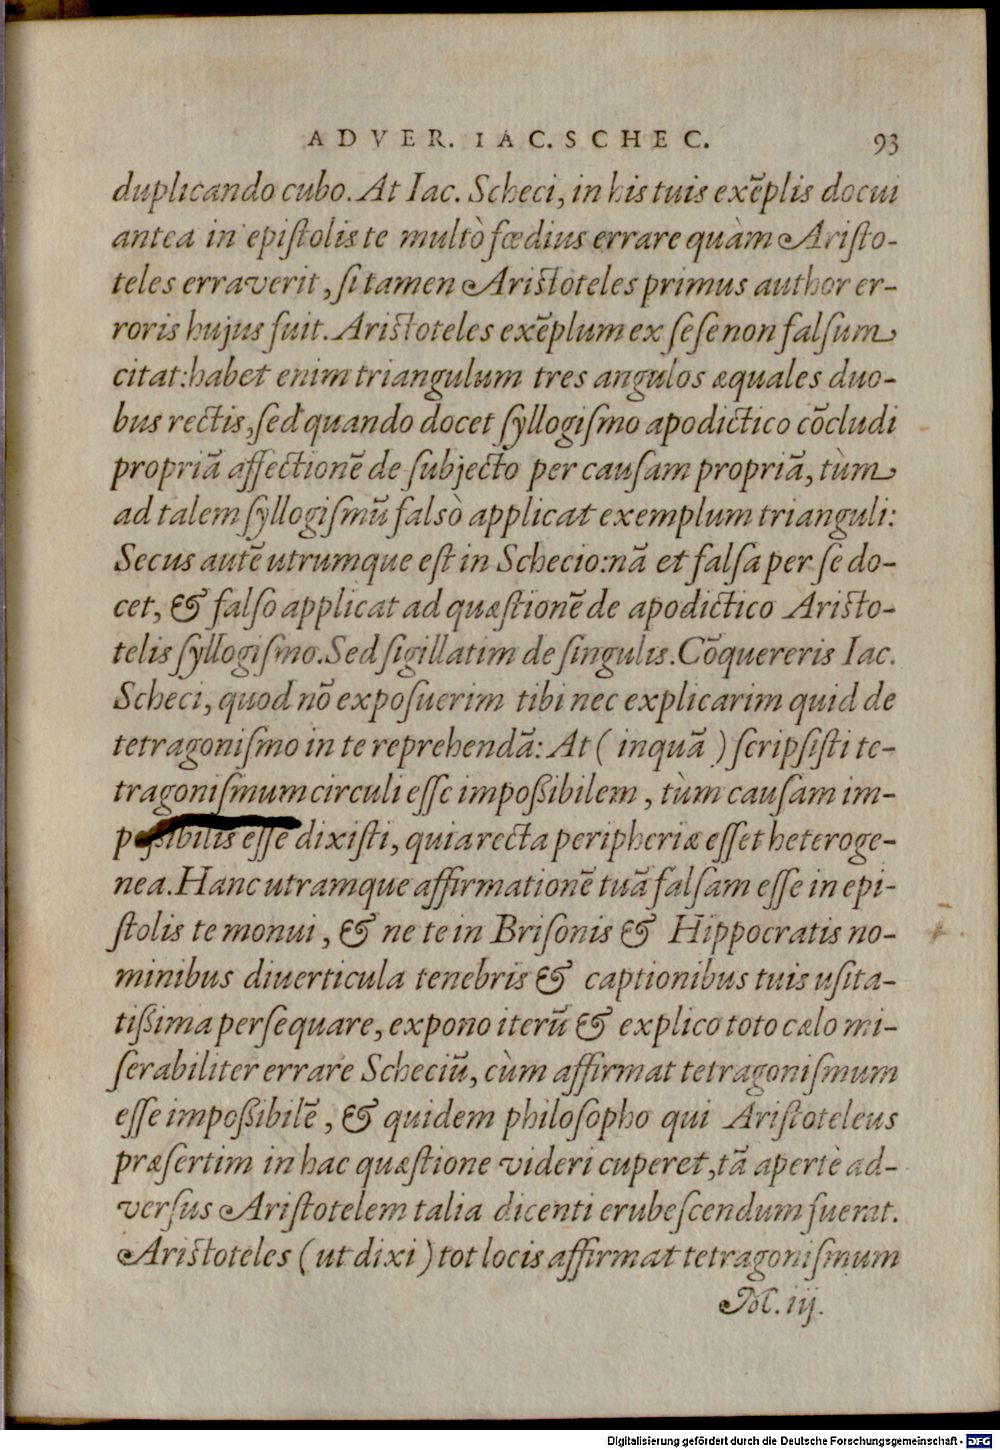 ADVER. IAC. SCHEC. 93
duplicando cubo. At Iac. Scheci, in his tuis exẽplis docui
antea in epiſtolis te multò fœdius errare quàm Ariſto-
teles erraverit, ſi tamen Ariſtoteles primus author er-
roris hujus fuit. Ariſtoteles exẽplum ex ſeſe non falſum
citat: habet enim triangulum tres angulos æquales duo-
bus rectis, ſed quando docet ſyllogiſmo apodictico cõcludi
propriã affectionẽ de ſubjecto per cauſam propriã, tùm
ad talem ſyllogiſmũ falsò applicat exemplum trianguli:
Secus autẽ utrumque eſt in Schecio: nã et falſa per ſe do-
cet, & falſo applicat ad quæſtionẽ de apodictico Ariſto-
telis ſyllogiſmo. Sed ſigillatim de ſingulis. Cõquereris Iac.
Scheci, quod nõ expoſuerim tibi nec explicarim quid de
tetragoniſmo in te reprehendã: At ( inquã ) ſcripſiſti te-
tragoniſmum circuli eſſe impoßibilem, tùm cauſam im-
poßibilis eſſe dixiſti, quia recta peripheriæ eſſet heteroge-
nea. Hanc utramque affirmationẽ tuã falſam eſſe in epi-
ſtolis te monui, & ne te in Briſonis & Hippocratis no-
minibus diuerticula tenebris & captionibus tuis uſita-
tißima perſequare, expono iterũ & explico toto cælo mi-
ſerabiliter errare Scheciũ, cùm affirmat tetragoniſmum
eſſe impoßibilẽ, & quidem philoſopho qui Ariſtoteleus
præſertim in hac quæſtione videri cuperet, tã apertè ad-
verſus Ariſtotelem talia dicenti erubeſcendum fuerat.
Ariſtoteles ( ut dixi ) tot locis affirmat tetragoniſmum
M. iij.
Digitalisierung gefördert durch die Deutsche Forschungsgemeinschaft - DFG